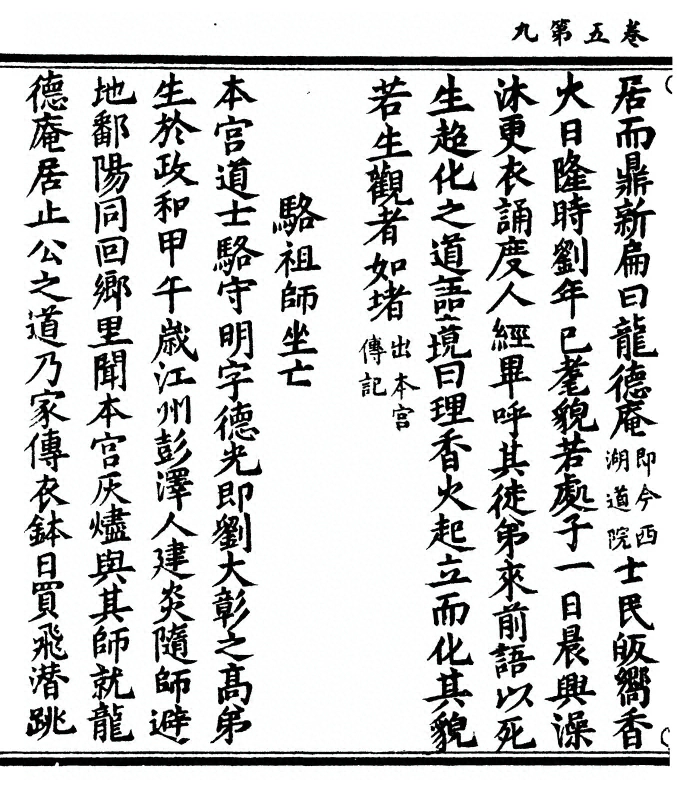 卷五第九
居而鼎新扁曰龍德庵即今西湖道院士民皈嚮香
火日隆時劉年已耄貌若處子一日晨興澡
沐更衣誦度人經畢呼其徒弟來前語以死
生超化之道語竟曰理香火起立而化其貌
若生觀者如堵出本宮傳記
駱祖師坐亡
本宮道士駱守明字德光即劉大彰之髙弟
生於政和甲午歲江州彭澤人建炎隨師避
地鄱陽同回鄉里聞本宮灰燼與其師就龍
德庵居止公之道乃家傳衣鉢日買飛潛跳